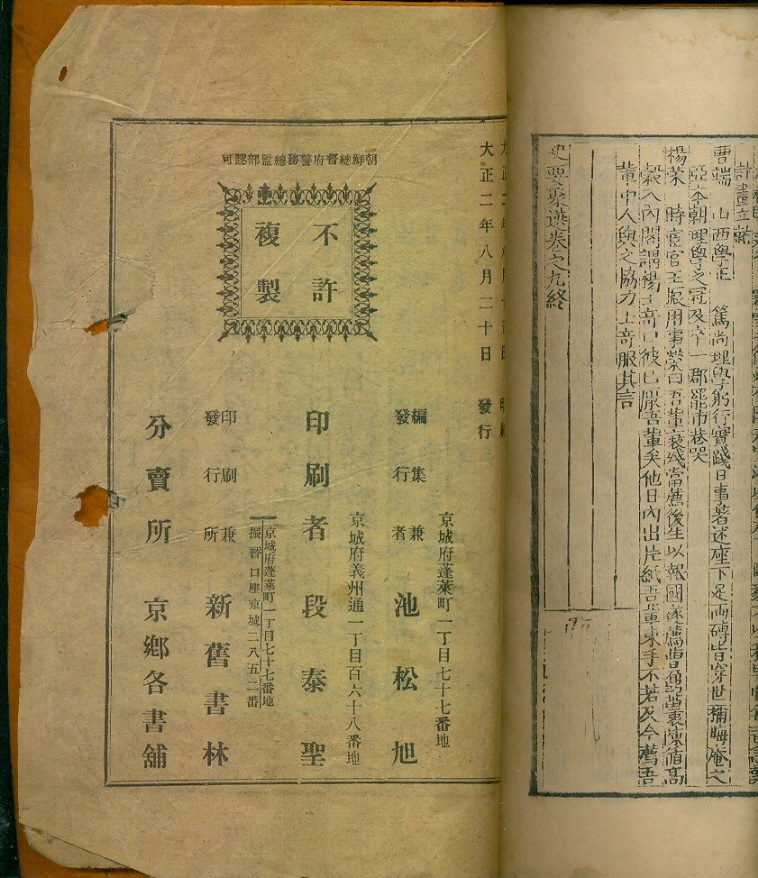 計畫立就
曹端 山西學正 篤尚理學躬行實踐日事著述座下足两磚皆穿世稱晦庵之
亞本朝理學之冠及卒一郡罷市巷哭
楊荣 時宦官王振用事荣曰吾輩衰殘當薦後生以報國遂薦曹鼐苗衷陳循高
穀入內閣謂楊士奇曰彼已厭吾輩矣他日內出片紙吾輩束手不若及今舊吾
輩中人與之協力士奇服其言
史要聚選卷之九終
大正二年八月十五日 印刷
大正二年八月二十日 發行
朝鮮總督府警務總監部認可
不許
複製
京城府蓬萊町一丁目七十七番地
編集兼
發行者 池松旭
京城府義州通一丁目百六十八番地
印刷者 段泰聖
京城府蓬萊町一丁目七十七番地
振替口座京城二八五二番
印刷兼
發行所 新舊書林
分賣所 京鄕各書舖